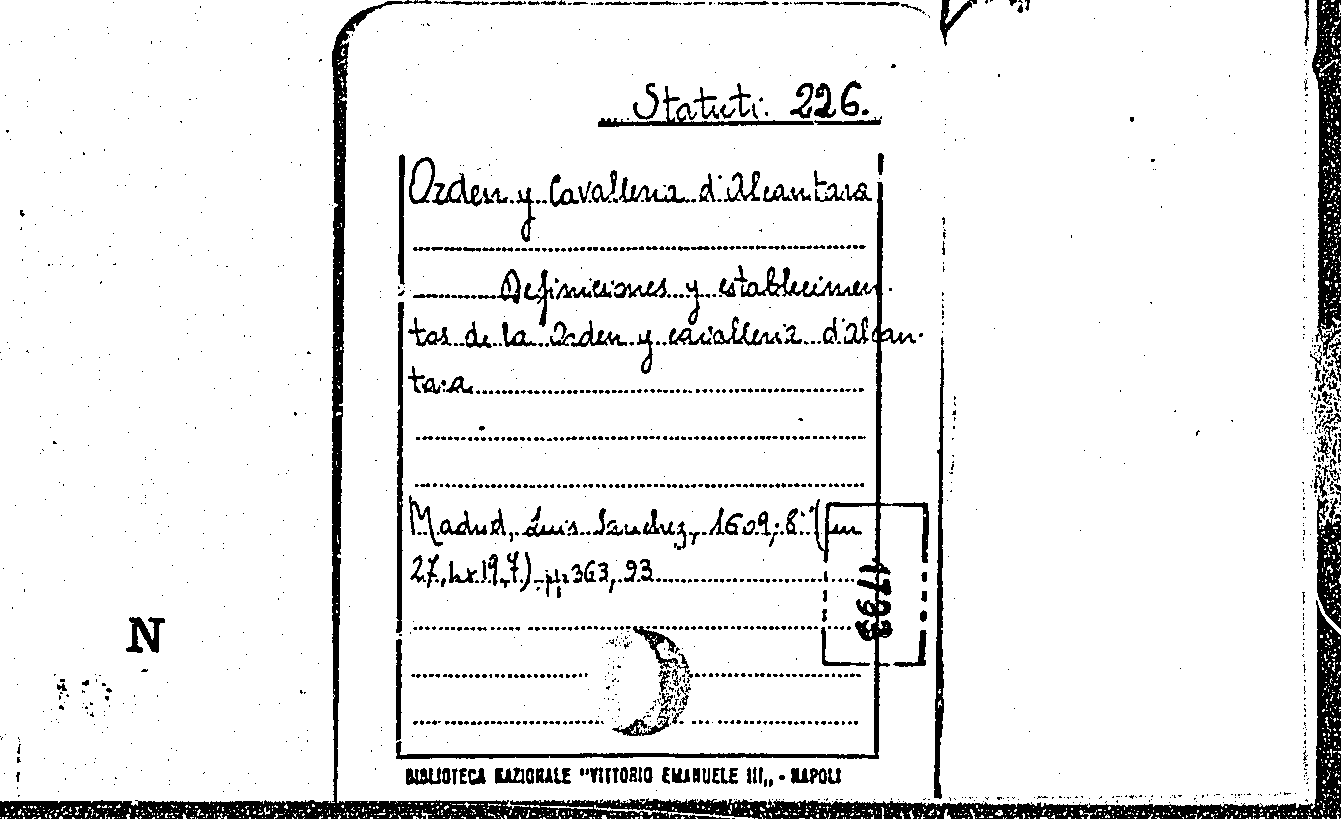 Statuti. 226.
Orden y Cavalleria d'Alcantara
Definiciones y establecimen-
tos de la Orden y cavalleria d'Alcan-
tara
Madrid, Luis Sanchez, 1609; 8° (cm
27,5x19,7) pp. 363, 93
1793
N
BIBLIOTECA NAZIONALE "VITTORIO EMANUELE III„ - NAPOLI